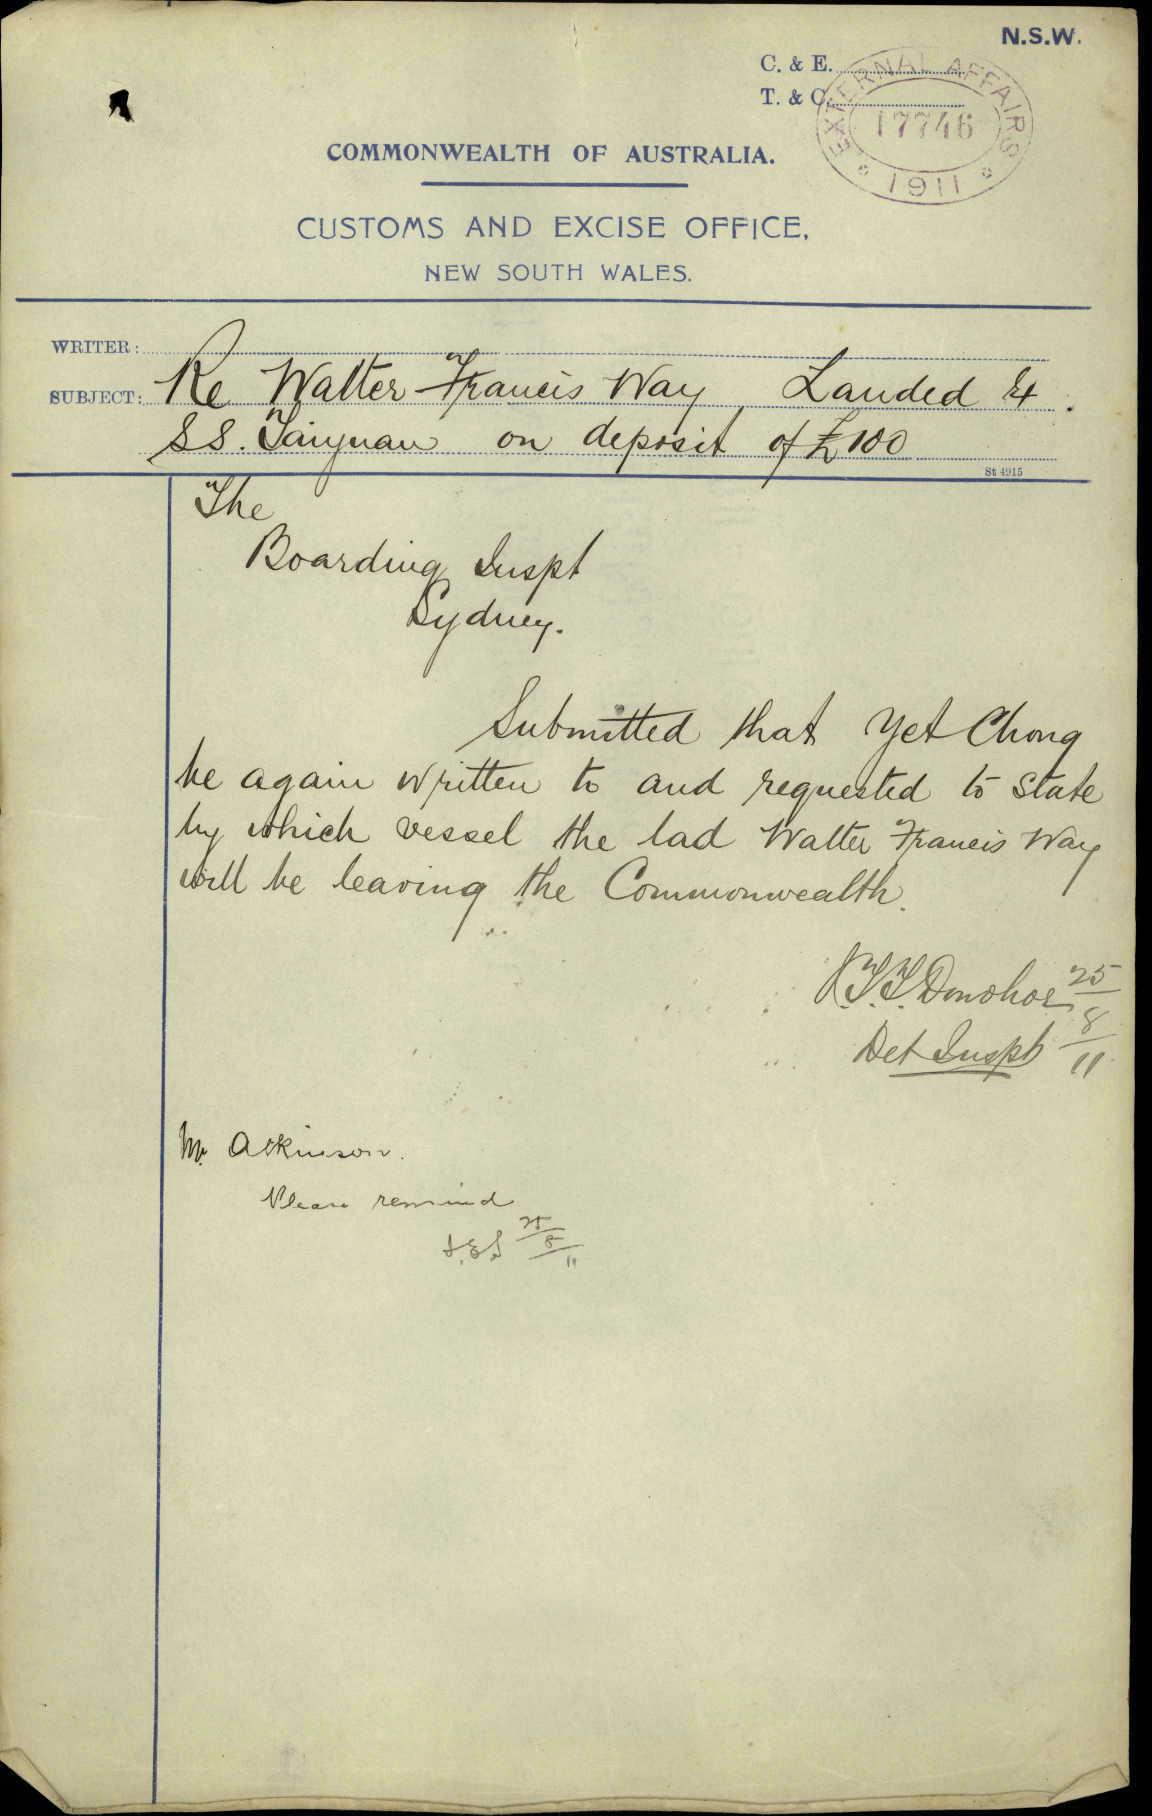 N.S.W.
C. & E.
T. & C.
EXTERNAL AFFAIRS
17746
1911
COMMONWEALTH OF AUSTRALIA.
CUSTOMS AND EXCISE OFFICE,
NEW SOUTH WALES.
WRITER:
SUBJECT: Re Walter Francis Way Landed Ex
SS. Taiyuan on deposit of £100
St 4915
The
Boarding Inspt
Sydney.
Submitted that Yet Chong
be again written to and requested to state
by which vessel the lad Walter Francis Way
will be leaving the Commonwealth.
Donohoe 25/8/11
Det Inspt
Mr Atkinson.
Please remind
25/8/11